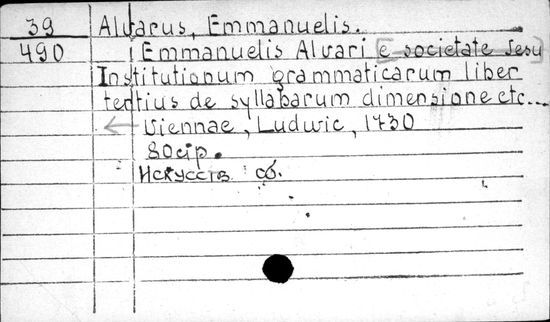 39 Alvarus, Emmanuelis.
490 Emmanuelis Alvari [e societate Jesu]
Institutionum grammaticarum liber
tertius de syllabarum dimensione etc...
Viennae, Ludwic, 1730
80 cip.
Искусств. сб.